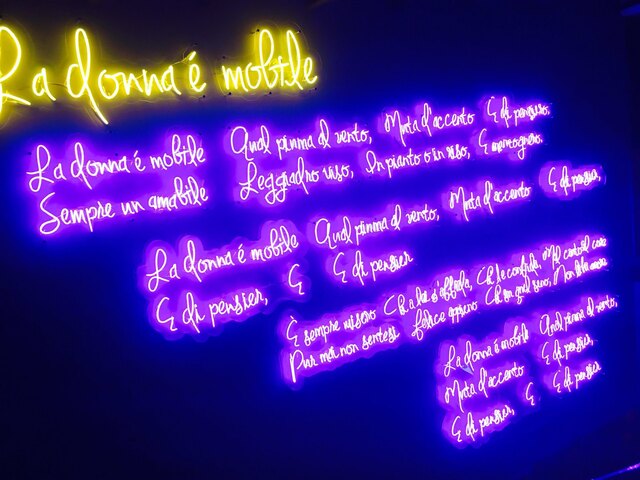 La donna é mobile
La donna é mobile Qual piuma al vento, Muta d'accento E di pensiero.
Sempre un amabile Leggiadro viso, In pianto o in riso, È menzognero.
La donna é mobile Qual piuma al vento, Muta d'accento E di pensier,
E di pensier, E E di pensier
È sempre misero Chi a lei s'affida, Chi le confida, Mal cauto il cuore
Pur mai non sentesi Felice appieno Chi su quel seno, Non liba amore
La donna é mobile Qual piuma al vento,
Muta d'accento E di pensier,
E di pensier, E E di pensier